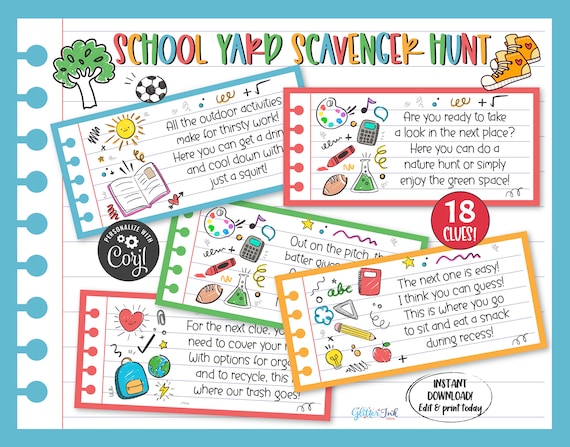 SCHOOL YARD SCAVENGER HUNT
All the outdoor activities
make for thirsty work!
Here you can get a drin
and cool down with
just a squirt!
Are you ready to take
a look in the next place?
Here you can do a
nature hunt or simply
enjoy the green space!
18
CLUES!
PERSONALIZE WITH
Corjl
Out on the pitch, th
batter give
The next one is easy!
I think you can guess!
This is where you go
to sit and eat a snack
during recess!
For the next clue, you
need to cover your
With options for orga
and to recycle, this
where our trash goes!
INSTANT
DOWNLOAD!
Edit & print today
Glitter Ink